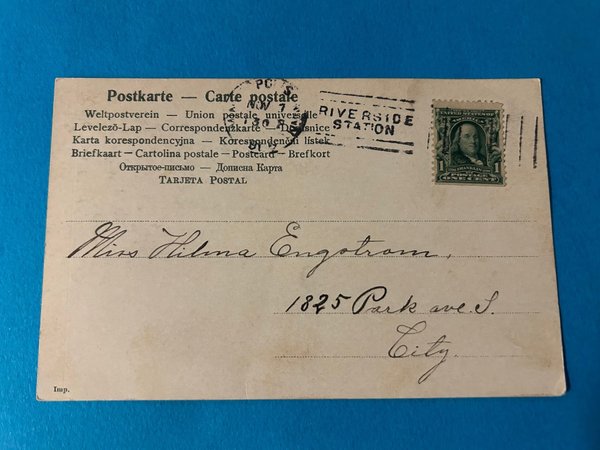 Postkarte — Carte postale
Weltpostverein — Union postale universelle
Levelező-Lap — Correspondenzkarte — Dopisnice
Karta korespondencyjna — Korespondenční lístek
Briefkaart — Cartolina postale — Postcard — Brefkort
Открытое-письмо — Дописна Карта
TARJETA POSTAL
NOV 7
RIVERSIDE
STATION
ONE CENT
Miss Hilma Engstrom,
1825 Park ave. S.
City.
Imp.